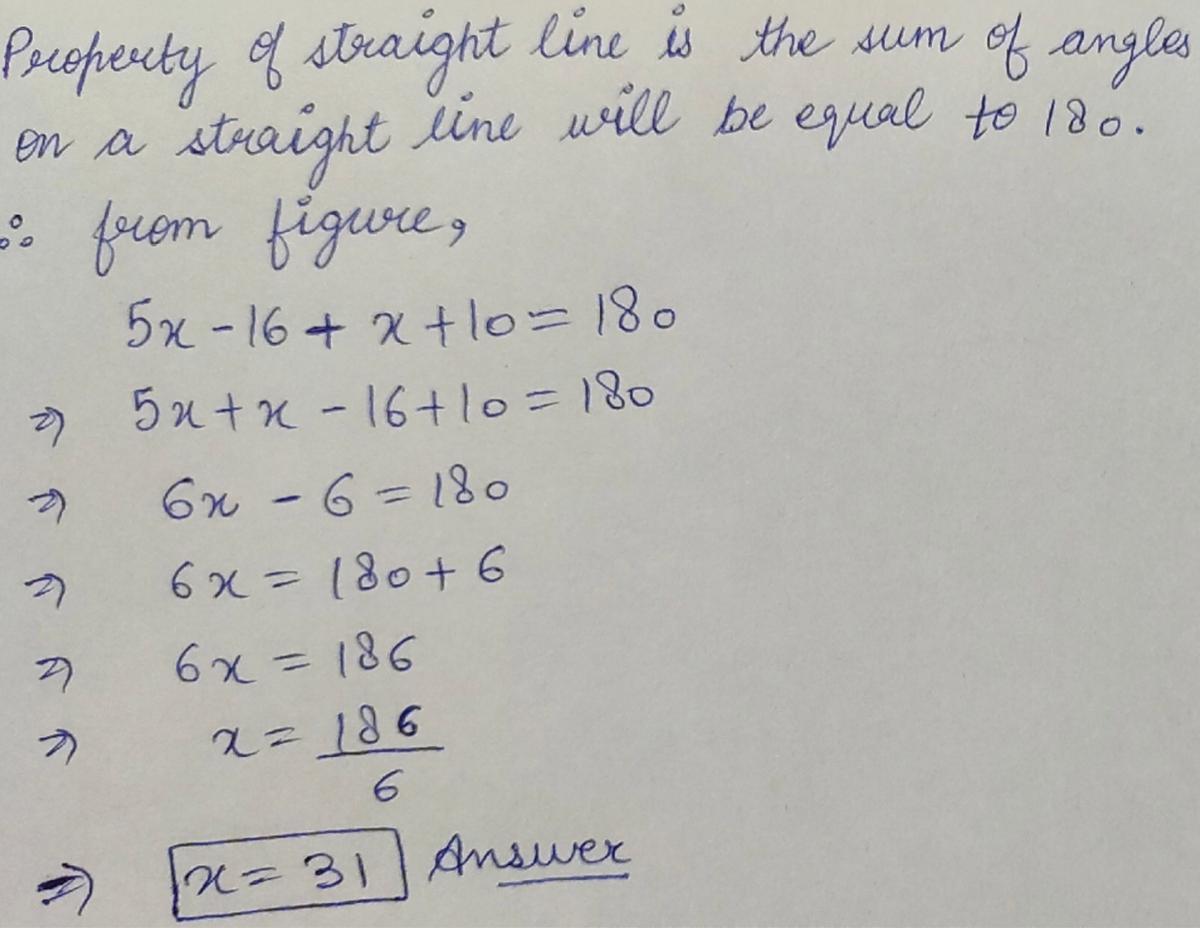 Property of straight line is the sum of angles
on a straight line will be equal to 180.
∴ from figure,
5x - 16 + x + 10 = 180
⇒ 5x + x - 16 + 10 = 180
⇒ 6x - 6 = 180
⇒ 6x = 180 + 6
⇒ 6x = 186
⇒ x = 186/6
⇒ x = 31 Answer